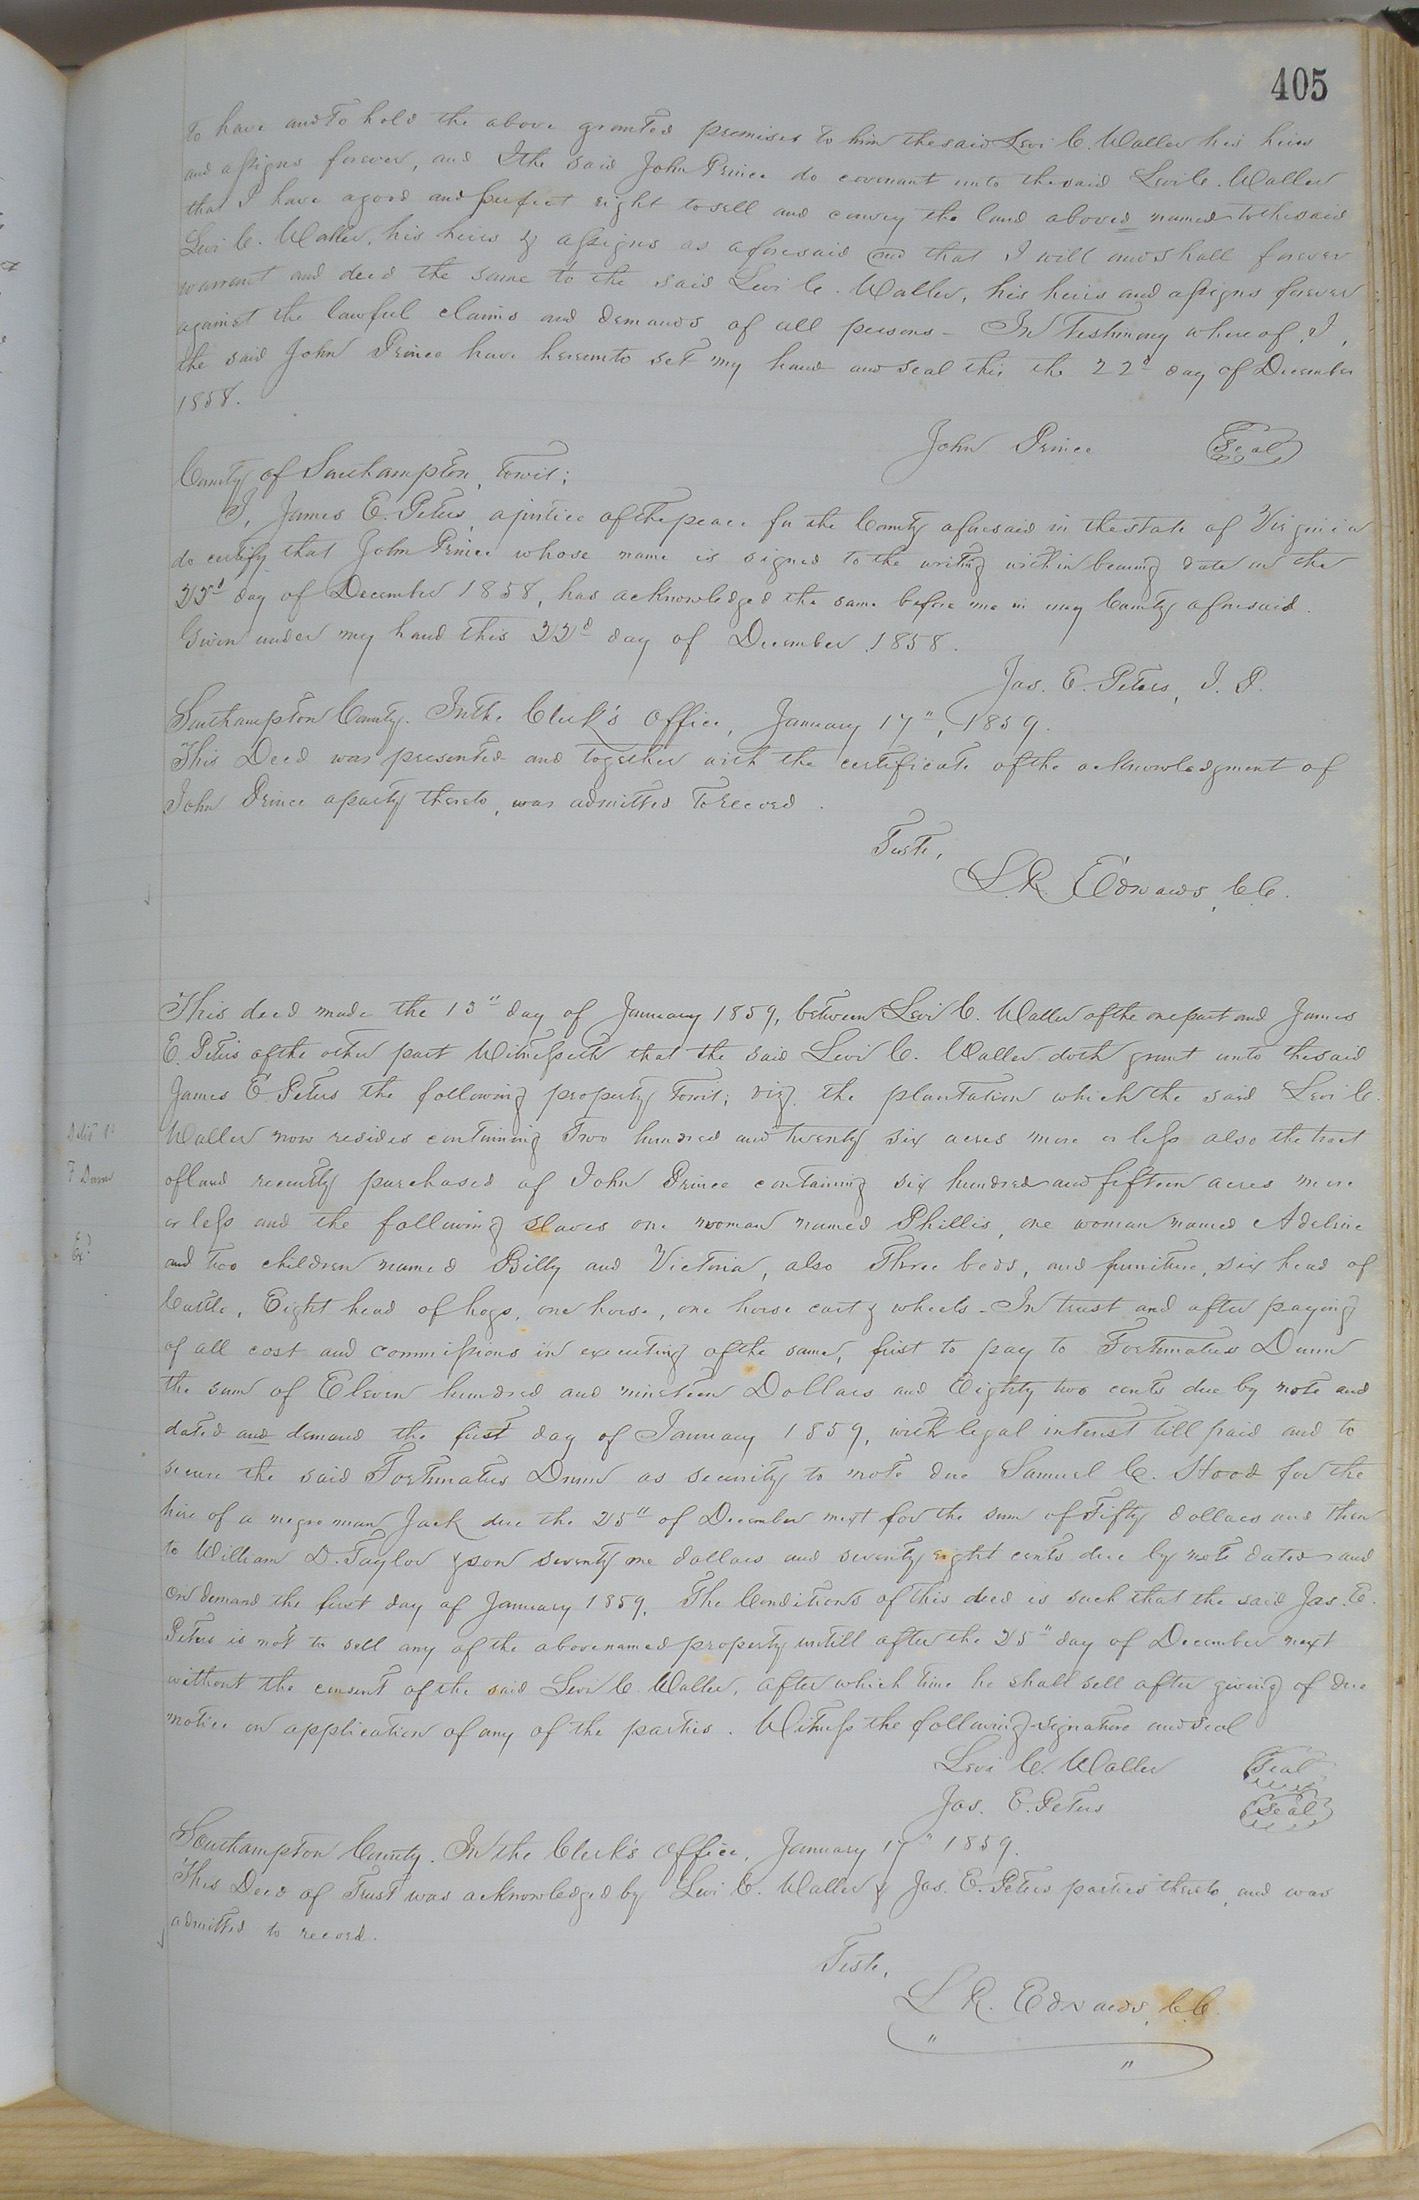 405
to have and to hold the above granted premises to him the said Levi C. Waller his heirs
and assigns forever, and I the said John Prince do covenant unto the said Levi C. Waller
that I have a good and perfect right to sell and convey the land above named to the said
Levi C. Waller, his heirs & assigns as aforesaid and that I will and shall forever
warrant and deed the same to the said Levi C. Waller, his heirs and assigns forever
against the lawful claims and demands of all persons - In Testimony whereof, I,
the said John Prince have hereunto set my hand and seal this the 22d day of December
1858.
John Prince Seal
County of Southampton, towit;
I, James E. Peters, a justice of the peace for the County aforesaid in the state of Virginia
do certify that John Prince whose name is signed to the writing within bearing date on the
22nd day of December 1858, has acknowledged the same before me in my County aforesaid.
Given under my hand this 22d day of December 1858.
Jas. E. Peters, J. P.
Southampton County. In the Clerk's Office, January 17", 1859.
This Deed was presented and together with the certificate of the acknowledgment of
John Prince a party thereto, was admitted to record.
Teste,
L. R. Edwards, C.C.
This deed made the 13" day of January 1859, between Levi C. Waller of the one part and James
E. Peters of the other part Witnesseth that the said Levi C. Waller doth grant unto the said
James E. Peters the following property towit; viz. the plantation which the said Levi C.
Waller now resides containing two hundred and twenty six acres more or less also the tract
of land recently purchased of John Prince containing six hundred and fifteen acres more
or less and the following slaves one woman named Phillis, one woman named Adeline
and two children named Billy and Victoria, also Three beds, and furniture, six head of
Cattle, Eight head of hogs, one horse, one horse cart & wheels - In trust and after paying
of all cost and commissions in executing of the same, first to pay to Fortunatus Dunn
the sum of Eleven hundred and nineteen Dollars and Eighty two cents due by note and
dated and demand the first day of January 1859, with legal interest till paid and to
secure the said Fortunatus Dunn as security to note due Samuel C. Hood for the
hire of a negro man Jack due the 25" of December next for the sum of Fifty dollars and then
to William D. Taylor & son seventy one dollars and seventy eight cents due by note dated and
on demand the first day of January 1859. The Conditions of this deed is such that the said Jas. E.
Peters is not to sell any of the above named property untill after the 25" day of December next
without the consent of the said Levi C. Waller, after which time he shall sell after giving of due
notice on application of any of the parties. Witness the following signature and seal
Levi C. Waller Seal
Jas. E. Peters Seal
Southampton County. In the Clerk's Office, January 17" 1859.
This Deed of Trust was acknowledged by Levi C. Waller & Jas. E. Peters parties thereto, and was
admitted to record.
Teste,
L R. Edwards, C.C.